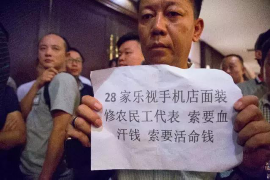 28家乐视手机店面装
修农民工代表 索要血
汗钱 索要活命钱